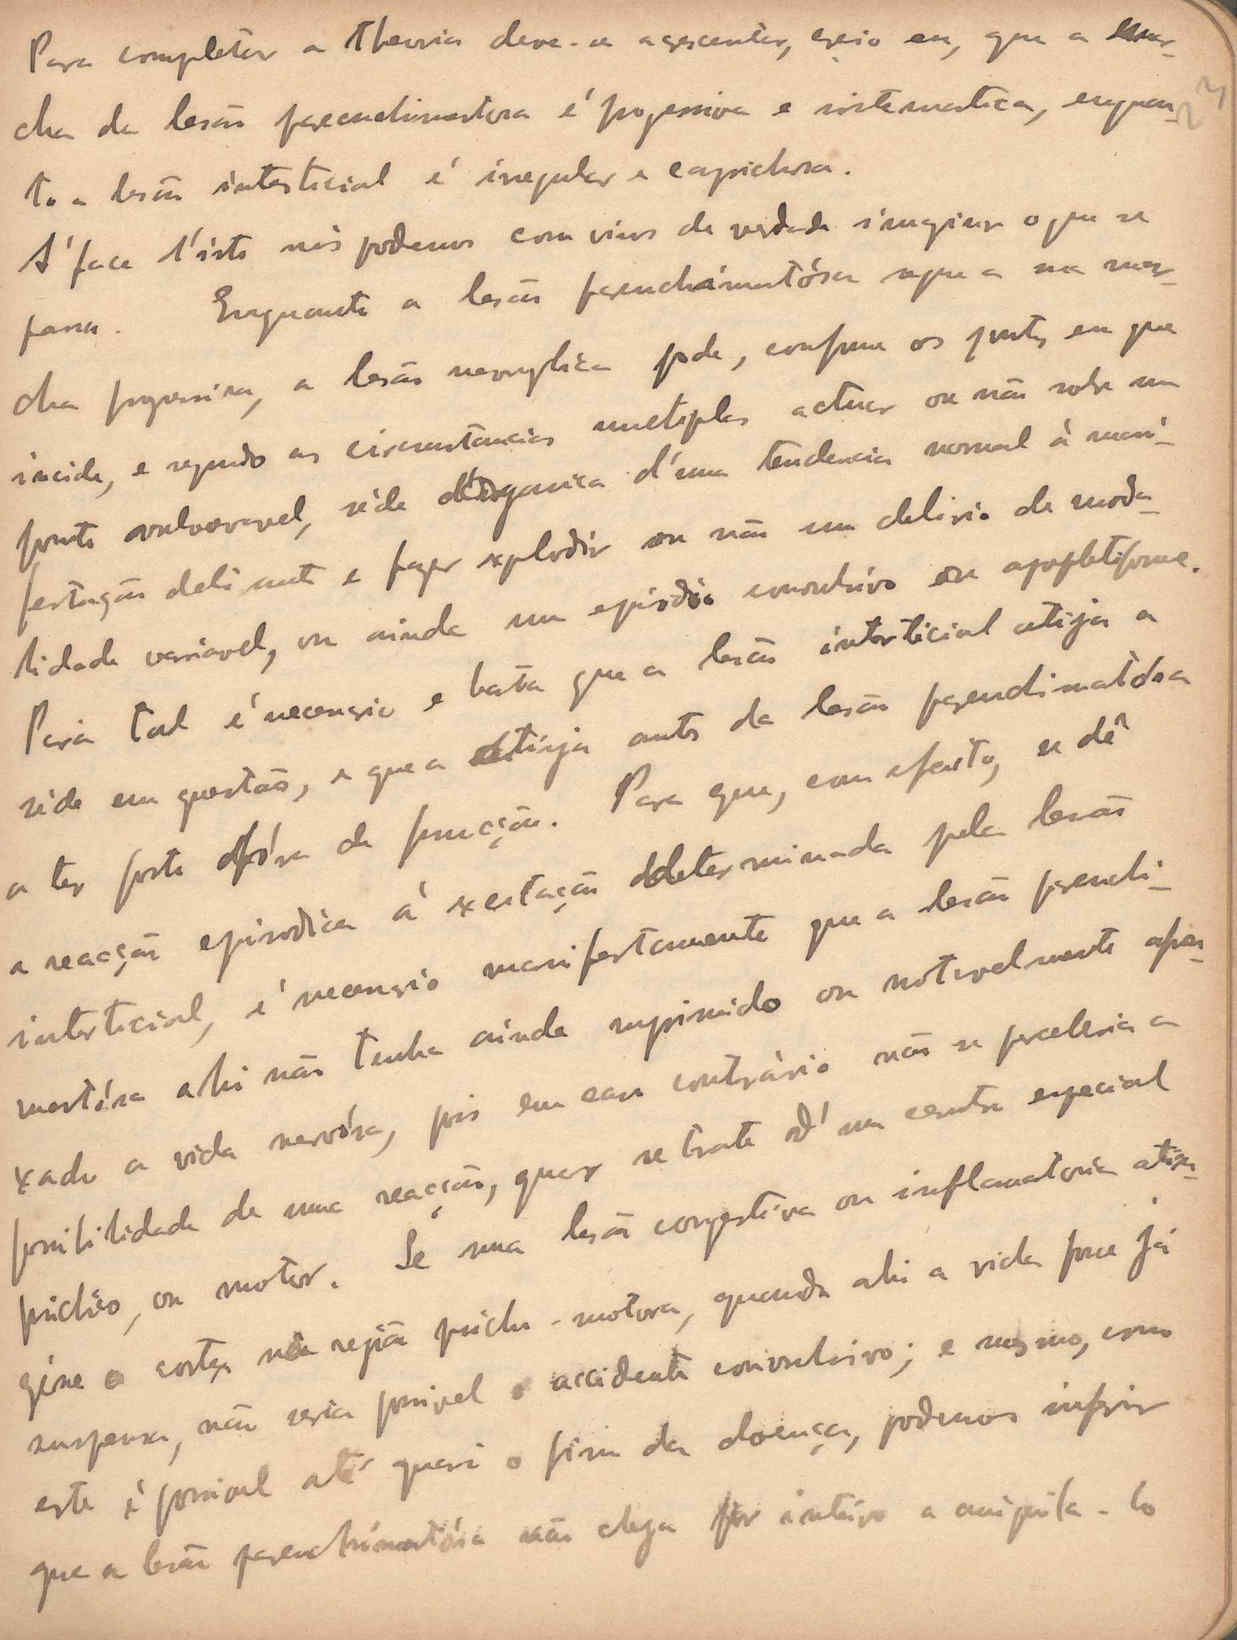 Para completar a theoria deve-se acrescentar, creio eu, que a mar-
cha da lesão parenchimatosa é progressiva e sistematica, enquan-
to a lesão intersticial é irregular e caprichosa.
Á face d'isto nós podemos com visos de verdade imaginar o que se
passa. Enquanto a lesão parenchimatósa segue a sua mar-
cha progressiva, a lesão neoroglica pode, conforme os pontos em que
incide, e segundo as circunstancias multiplas actuar ou não sobre um
ponto vulneravel, séde organica d'uma tendencia normal à mani-
festação delirante e fazer explodir ou não um delirio de moda-
lidade variavel, ou ainda um episodio convulsivo ou apopletiforme.
Para tal é necessario e basta que a lesão intersticial atinja a
séde em questão, e que a atinja antes da lesão parenchimatósa
a ter posto fóra de funcção. Para que, com efeito, se dê
a reacção episodica á excitação determinada pela lesão
intersticial, é necessario manifestamente que a lesão parenchi-
matósa ahi não tenha ainda suprimido ou notavelmente abai-
xado a vida nervósa, pois em caso contrário não se perceberia a
possibilidade de uma reacção, quer se trate d'um centro especial
psichico, ou motor. Se uma lesão congestiva ou inflamatoria atin-
gisse o cortex na região psicho-motora, quando ahi a vida fosse já
suspensa, não seria possivel o accidente convulsivo; e mesmo, como
este é possivel até quasi o fim da doença, podemos inferir
que a lesão parenchimatósa não chega por inteiro a aniquila-lo